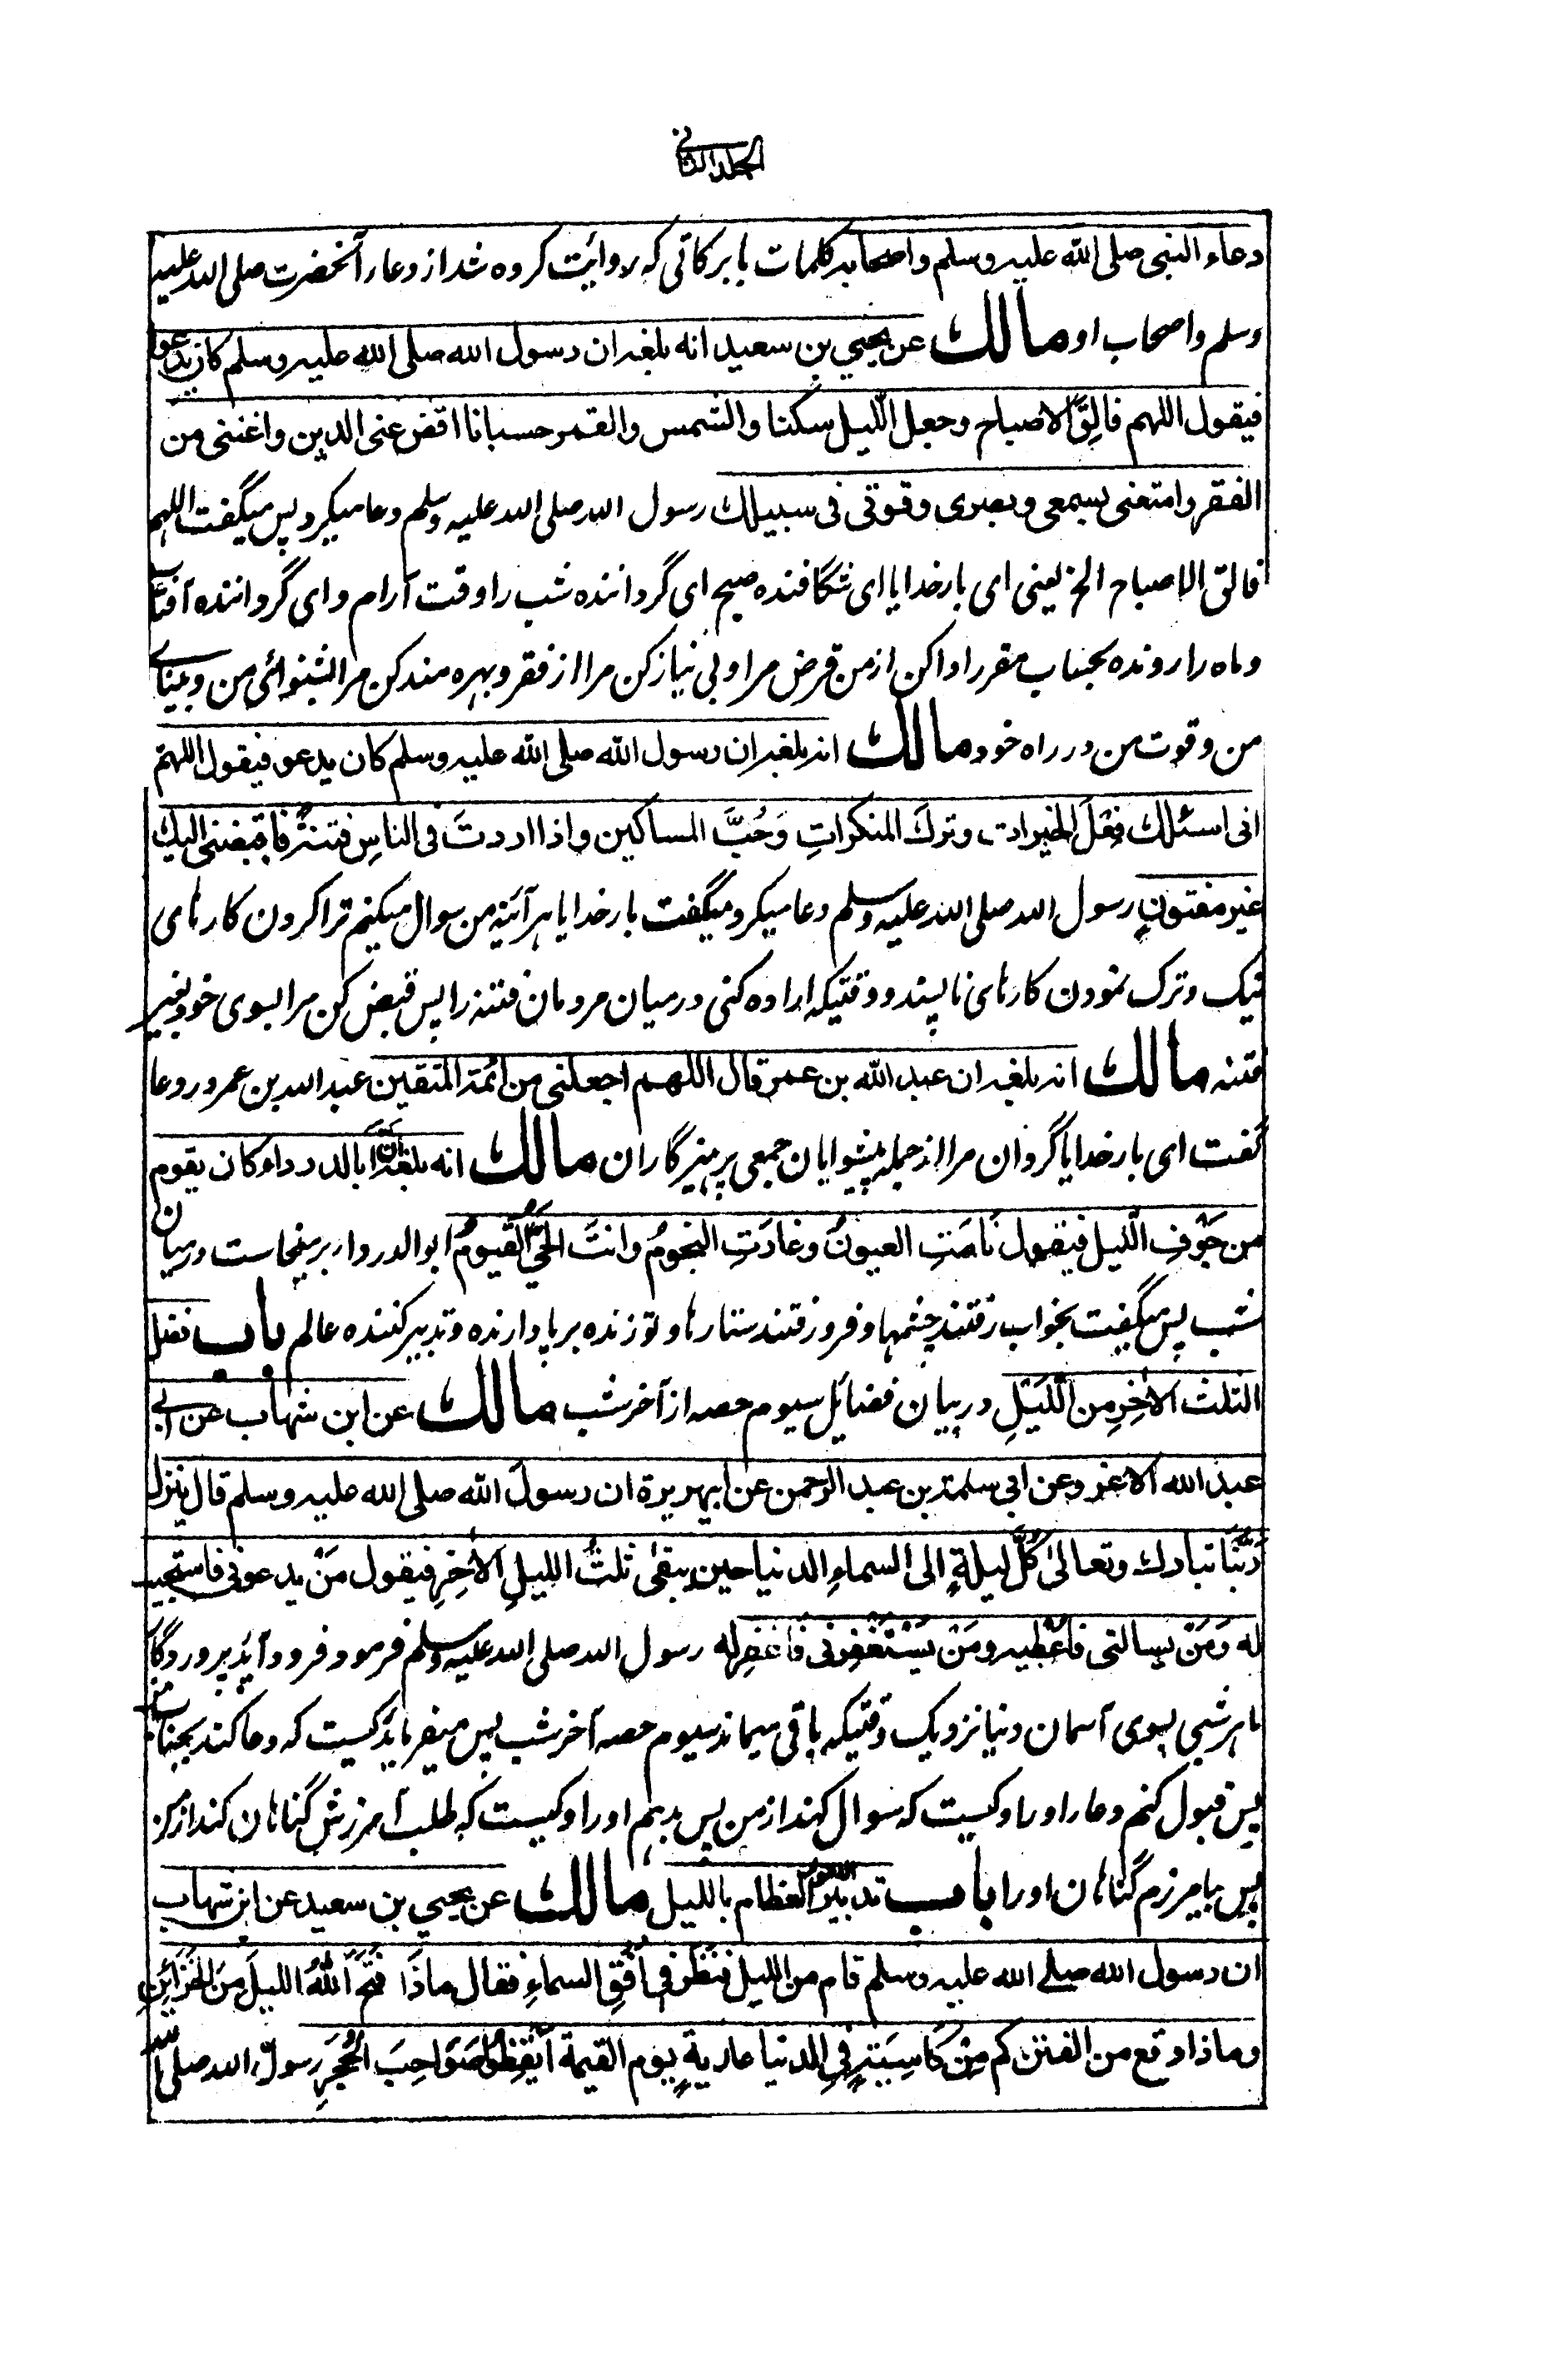 الجلد الثانی
دعاء النبی صلی الله علیه وسلم واصحابه کلمات با برکاتی که روایت کرده شد از دعاء آنحضرت صلی الله علیه
وسلم واصحاب او مالك عن یحیی بن سعید انه بلغه ان رسول الله صلی الله علیه وسلم کان یدعوا
فیقول اللهم فالِقَ الاصباح وجعل اللّیل سکنا والشمس والقمر حسبانا اقض عنی الدین واغننی من
الفقر وامتعنی بسمعی وبصری وقوتی فی سبیلك رسول الله صلی الله علیه وسلم دعا میکرد پس میگفت اللهم
فالق الاصباح الخ یعنی ای بار خدایا ای شگافنده صبح ای گرداننده شب را وقت آرام و ای گرداننده آفتاب
وماه را رونده بحساب مقرر ادا کن از من قرض مرا و بی نیاز کن مرا از فقر و بهره مند کن مرا بشنوائی من و بینائے
من وقوت من در راه خود مالك انه بلغه ان رسول الله صلی الله علیه وسلم کان یدعو فیقول اللهمّ
انی اسئلك فِعْلَ الخیرات وتركَ المنکراتِ وَحُبَّ المساکین واذا اردتَ فی الناسِ فتنةً فاقبضنی الیك
غیر مفتونٍ رسول الله صلی الله علیه وسلم دعا میکرد و میگفت بار خدایا هر آئینه من سوال میکنم ترا کردن کارهای
نیک و ترک نمودن کارهای ناپسند و وقتیکه اراده کنی در میان مردمان فتنه را پس قبض کن مرا بسوی خود بغیر
فتنه مالك انه بلغه ان عبد الله بن عمر قال اللهم اجعلنی من ائمة المتقین عبد الله بن عمر در دعا
گفت ای بار خدایا گردان مرا از جمله پیشوایان جمعی پرهیزگاران مالك انه بلغه اَنَّ ابا الدرداء کان یقوم
من جَوْفِ اللّیل فیقول نَامَتِ العیونُ وغارَتِ النجومُ وانتَ الحَیُّ القَیومُ ابو الدرداء بر میخاست درمیان
شب پس میگفت بخواب رفتند چشمها و فرو رفتند ستارها و تو زنده برپا دارنده و تدبیر کننده عالم باب فضل
الثلث الاٰخِرِ من اللَّیْلِ در بیان فضایل سیوم حصه از آخر شب مالك عن ابن شهاب عن ابی
عبد الله الاغر وعن ابی سلمة بن عبد الرحمن عن ابیهریرة ان رسولَ الله صلی الله علیه وسلم قال ینزل
رَبُّنَا تبارك وتعالیٰ کُلَّ لیلةٍ الی السماءِ الدنیا حین یبقیٰ ثلثُ اللیلِ الاٰخِرِ فیقول مَنْ یدعونی فاستجیب
له وَمَنْ یسالنی فاُعْطِیه ومَنْ یَسْتَغْفِرُنی فَاَغْفِرله رسول الله صلی الله علیه وسلم فرمود فرود آید پروردگا
ما هر شبی بسوی آسمان دنیا نزدیک وقتیکه باقی میماند سیوم حصه آخر شب پس میفرماید کیست که دعا کند بجناب من
پس قبول کنم دعا را او را و کیست که سوال کند از من پس بدهم او را و کیست که طلب آمرزش گناهان کند از من
پس بیامرزم گناهان او را باب تدبیر الامور العظام باللیل مالك عن یحیی بن سعید عن ابن شهاب
ان رسول الله صلے الله علیه وسلم قام من اللیل فنَظَرَ فی اُفُقِ السماءِ فقال ماذَا فَتَحَ اللهُ اللیلَ مِنَ الخَزَائِنِ
وماذا وقع من الفتن کم مِنْ کَاسِیَةٍ فِی الدنیا عاریةٍ یوم القیمة اَیْقِظُوا صَوَاحِبَ الحُجَرِ رسول الله صلی الله